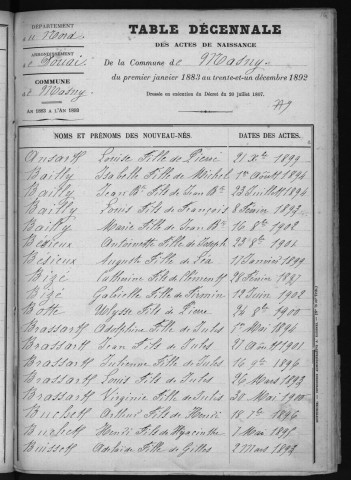 DÉPARTEMENT
du Nord
ARRONDISSEMENT
de Douai
COMMUNE
de Masny
TABLE DÉCENNALE
DES ACTES DE NAISSANCE
De la Commune de Masny
du premier janvier 1883 au trente-et-un décembre 1892
Dressée en exécution du Décret du 20 juillet 1807.
NOMS ET PRÉNOMS DES NOUVEAU-NÉS. DATES DES ACTES.
Ansart Louise Fille de Pierre 21 Xbre 1899
Bailly Isabelle Fille de Michel 1er Août 1894
Bailly Jean Bte Fils de Jean Bte 23 Juillet 1896
Bailly Louis Fils de François 8 Février 1893
Bailly Marie Fille de Jean Bte 16 8bre 1902
Bésieux Antoinette Fille de Joseph 23 1901
Bésieux Auguste Fils de Léa 17 Janvier 1899
Bigé Catherine Fille de Clément 28 Février 1897
Bigé Gabrielle Fille de Firmin 12 Juin 1902
Botte Ulysse Fils de Pierre 24 8bre 1900
Brassart Adolphine Fille de Jules 1er Mai 1894
Brassart Jean Fils de Jules 27 Août 1901
Brassart Julienne Fille de Jules 16 9bre 1896
Brassart Louis Fils de Jules 26 Mars 1893
Brassart Virginie Fille de Jules 30 Mai 1900
Buchett Arthur Fils de Henri 18 7bre 1896
Buchett Henri Fils de Hyacinthe 7 Mai
Buissett Adelaïde Fille de Gilles 2 Mars 1893